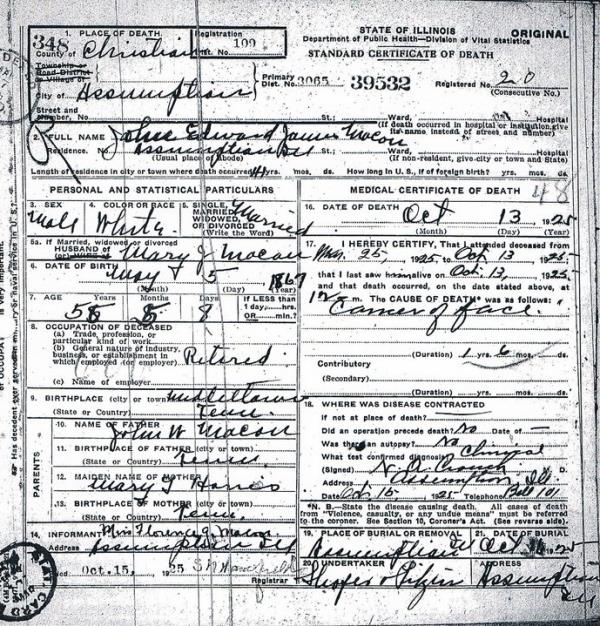 1. PLACE OF DEATH. Registration STATE OF ILLINOIS ORIGINAL
348 Christian Dist. No. 109 Department of Public Health—Division of Vital Statistics
County of STANDARD CERTIFICATE OF DEATH
Township or
Road District
or Village of
City of Assumption Primary Dist. No. 3065 39532 Registered No. 20
(Consecutive No.)
Street and
Number, No. St.; Ward, Hospital
(If death occurred in hospital or institution, give its name instead of street and number)
2. FULL NAME John Edward James Macon
Residence. No. Assumption Ill St.; Ward, Hospital
(Usual place of abode) (If non-resident, give city or town and State)
Length of residence in city or town where death occurred 41 yrs. mos. ds. How long in U. S., if of foreign birth? yrs. mos. ds.
PERSONAL AND STATISTICAL PARTICULARS
3. SEX 4. COLOR OR RACE 5. SINGLE, MARRIED, WIDOWED, OR DIVORCED
Male White Married
(Write the Word)
5a. If Married, widowed or divorced
HUSBAND of Mary J Macon
6. DATE OF BIRTH May 5 1867
(Month) (Day) (Year)
7. AGE Years Months Days If LESS than
58 5 8 1 day,....hrs.
OR.....min.?
8. OCCUPATION OF DECEASED
(a) Trade, profession, or
particular kind of work
(b) General nature of industry,
business, or establishment in
which employed (or employer) Retired
(c) Name of employer
9. BIRTHPLACE (city or town) Middletown
(State or Country) Tenn.
PARENTS
10. NAME OF FATHER
John W Macon
11. BIRTHPLACE OF FATHER (city or town)
(State or Country) Tenn
12. MAIDEN NAME OF MOTHER
Mary J Harris
13. BIRTHPLACE OF MOTHER (city or town)
(State or Country) Tenn.
14. INFORMANT Mrs Florence J Macon
Address Assumption Ill
Oct. 15, 1925
Registrar
MEDICAL CERTIFICATE OF DEATH 48
16. DATE OF DEATH Oct 13 1925
(Month) (Day) (Year)
17. I HEREBY CERTIFY, That I attended deceased from
Mar. 25, 1925, to Oct 13 1925
that I last saw him alive on Oct. 13, 1925
and that death occurred, on the date stated above, at
m. The CAUSE OF DEATH* was as follows:
Cancer of face.
(Duration) 1 yrs. 6 mos. ds.
Contributory
(Secondary)
(Duration) yrs. mos. ds.
18. WHERE WAS DISEASE CONTRACTED
If not at place of death?
Did an operation precede death? No Date of —
Was there an autopsy? No
What test confirmed diagnosis? Clinical
(Signed) N. A. Crouch M. D.
Address Assumption, Ill.
Date Oct. 15 1925 Telephone Bell 101
*N. B.—State the disease causing death. All cases of death
from "Violence, casualty, or any undue means" must be referred
to the coroner. See Section 10, Coroner's Act. (See reverse side)
19. PLACE OF BURIAL OR REMOVAL 21. DATE OF BURIAL
Assumption Ill Oct 1925
20. UNDERTAKER ADDRESS
Assumption
Ill